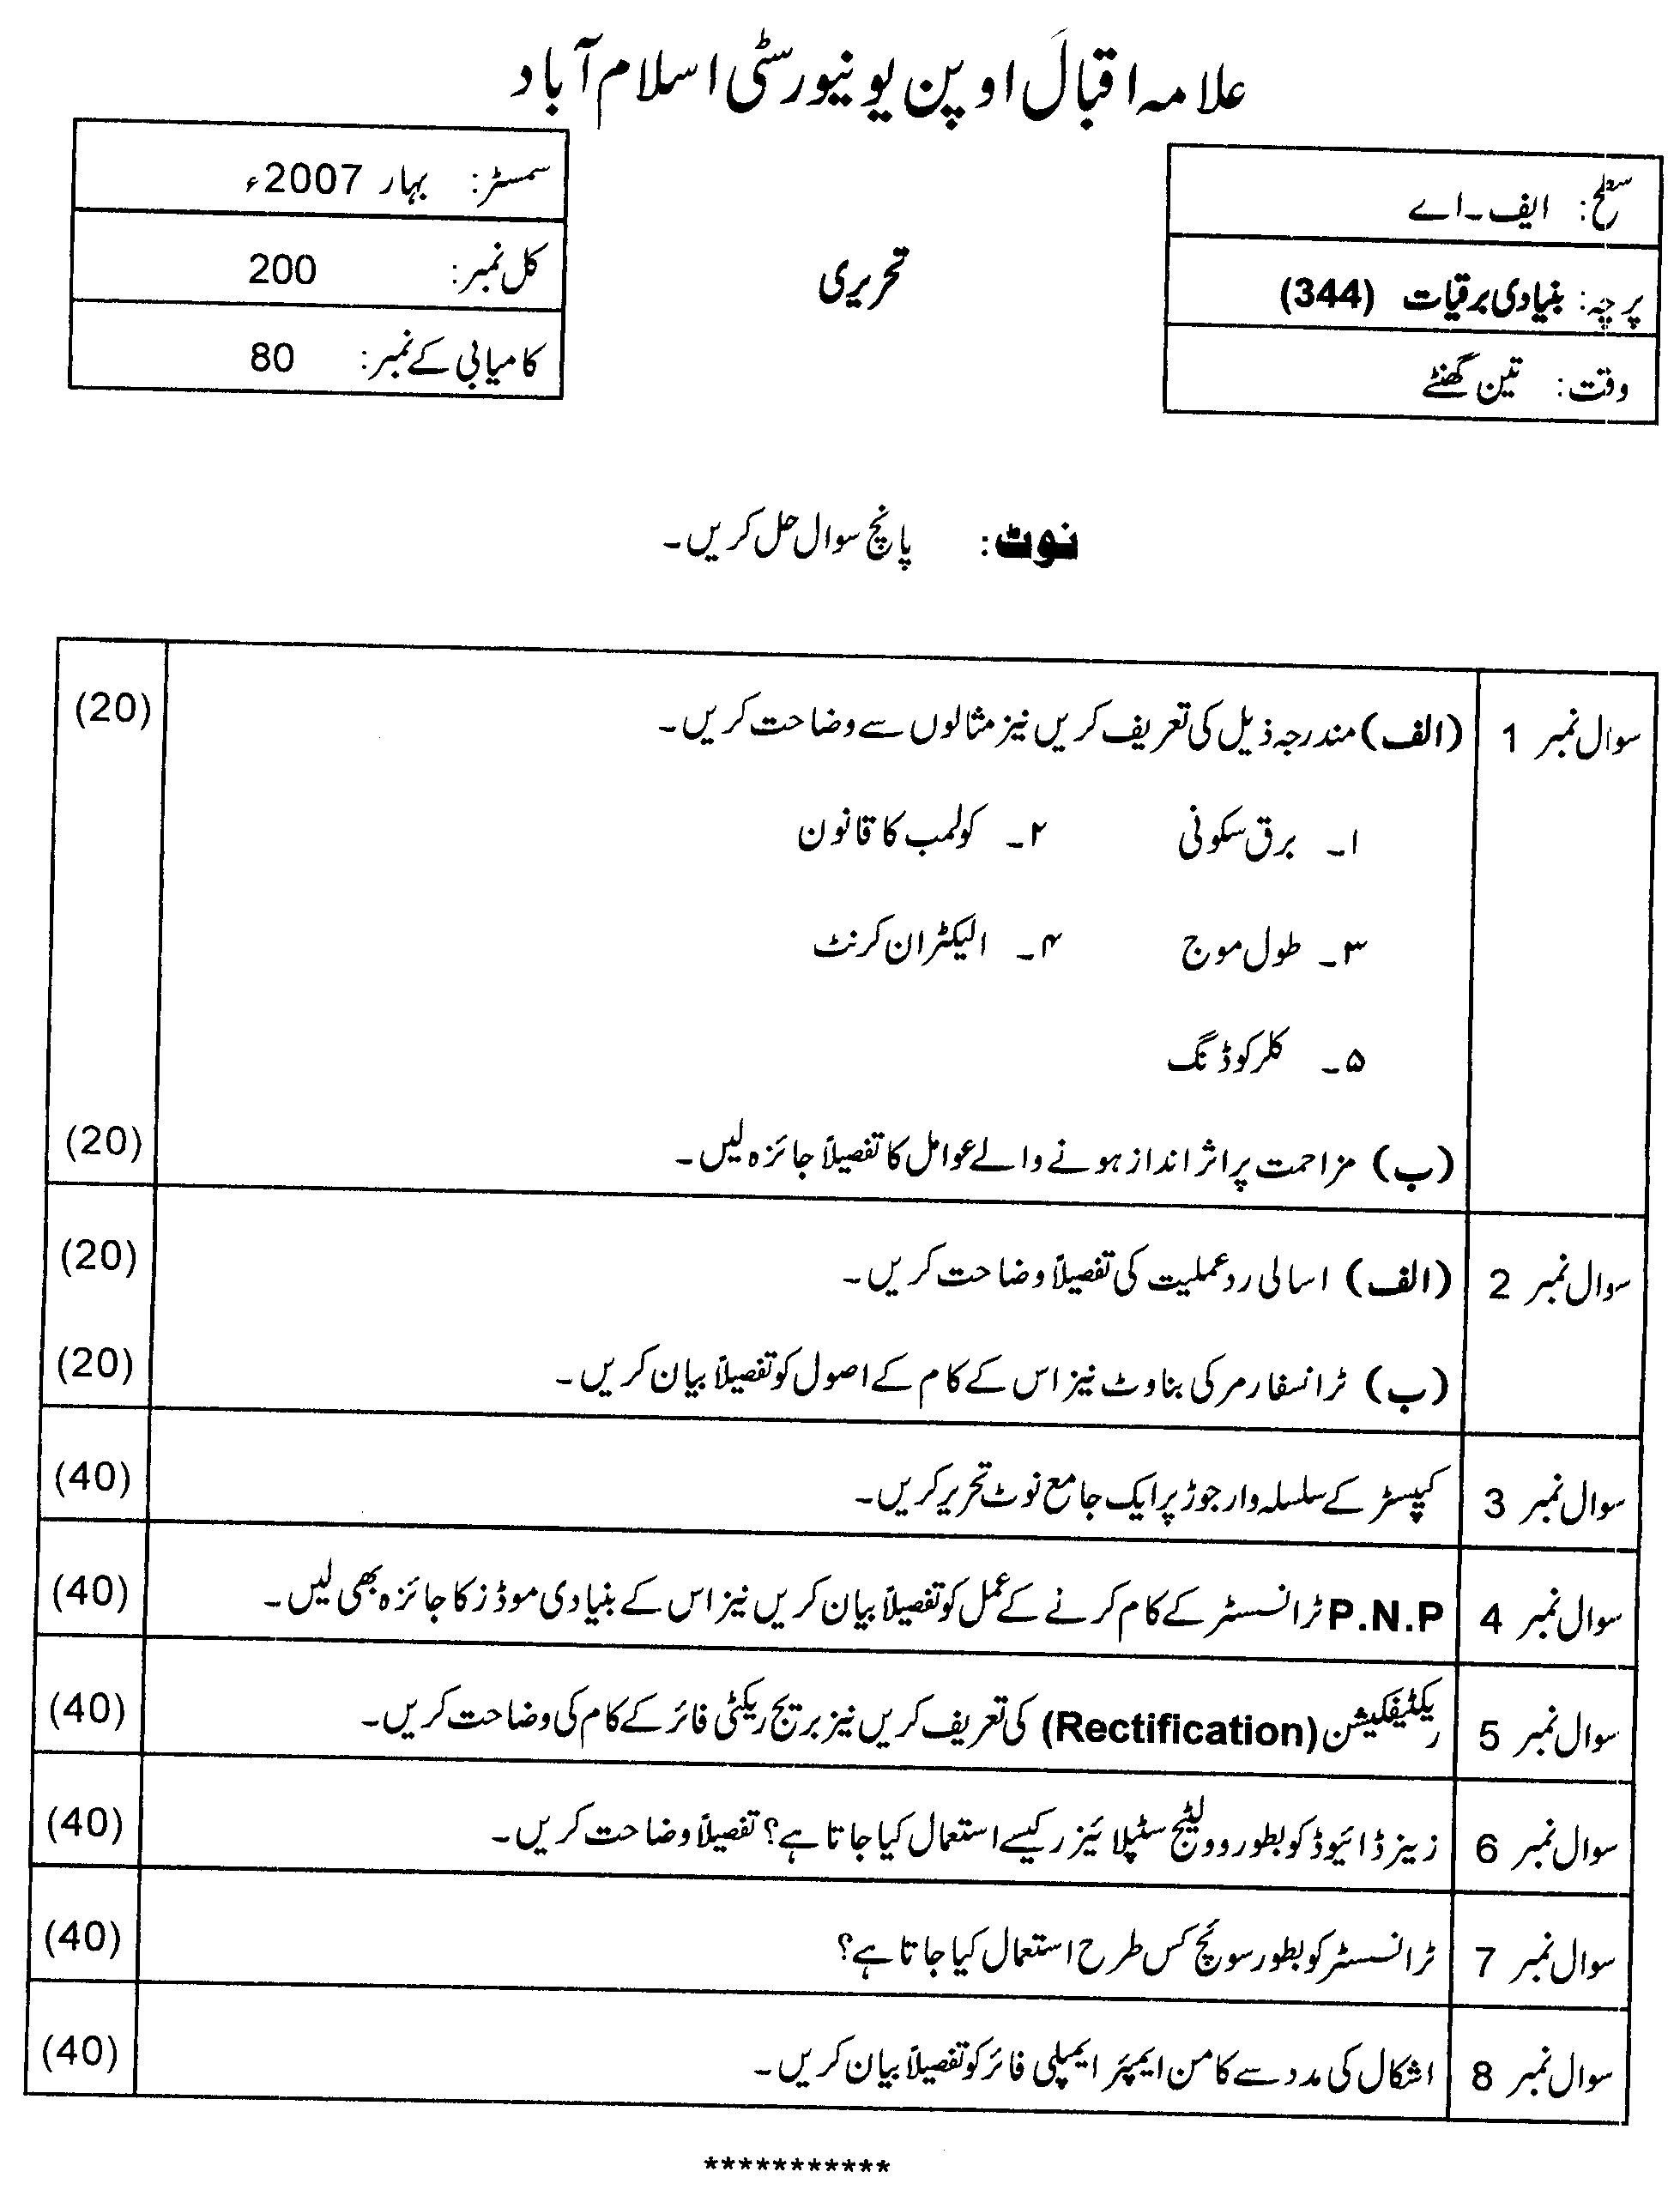 علامہ اقبال اوپن یونیورسٹی اسلام آباد
سطح: ایف۔اے
پرچہ: بنیادی برقیات (344)
وقت: تین گھنٹے
تحریری
سمسٹر: بہار 2007ء
کل نمبر: 200
کامیابی کے نمبر: 80
نوٹ: پانچ سوال حل کریں۔
سوال نمبر 1 (الف) مندرجہ ذیل کی تعریف کریں نیز مثالوں سے وضاحت کریں۔ (20)
۱۔ برق سکونی ۲۔ کولمب کا قانون
۳۔ طول موج ۴۔ الیکٹران کرنٹ
۵۔ کلر کوڈنگ
(ب) مزاحمت پر اثر انداز ہونے والے عوامل کا تفصیلاً جائزہ لیں۔ (20)
سوال نمبر 2 (الف) اسالی ردعملیت کی تفصیلاً وضاحت کریں۔ (20)
(ب) ٹرانسفارمر کی بناوٹ نیز اس کے کام کے اصول کو تفصیلاً بیان کریں۔ (20)
سوال نمبر 3 کپسٹر کے سلسلہ وار جوڑ پر ایک جامع نوٹ تحریر کریں۔ (40)
سوال نمبر 4 P.N.P ٹرانسسٹر کے کام کرنے کے عمل کو تفصیلاً بیان کریں نیز اس کے بنیادی موڈز کا جائزہ بھی لیں۔ (40)
سوال نمبر 5 ریکٹیفکیشن (Rectification) کی تعریف کریں نیز بریج ریکٹی فائر کے کام کی وضاحت کریں۔ (40)
سوال نمبر 6 زینر ڈائیوڈ کو بطور وولٹیج سٹپلائیزر کیسے استعمال کیا جاتا ہے؟ تفصیلاً وضاحت کریں۔ (40)
سوال نمبر 7 ٹرانسسٹر کو بطور سوئچ کس طرح استعمال کیا جاتا ہے؟ (40)
سوال نمبر 8 اشکال کی مدد سے کامن ایمپئر ایمپلی فائر کو تفصیلاً بیان کریں۔ (40)
***********